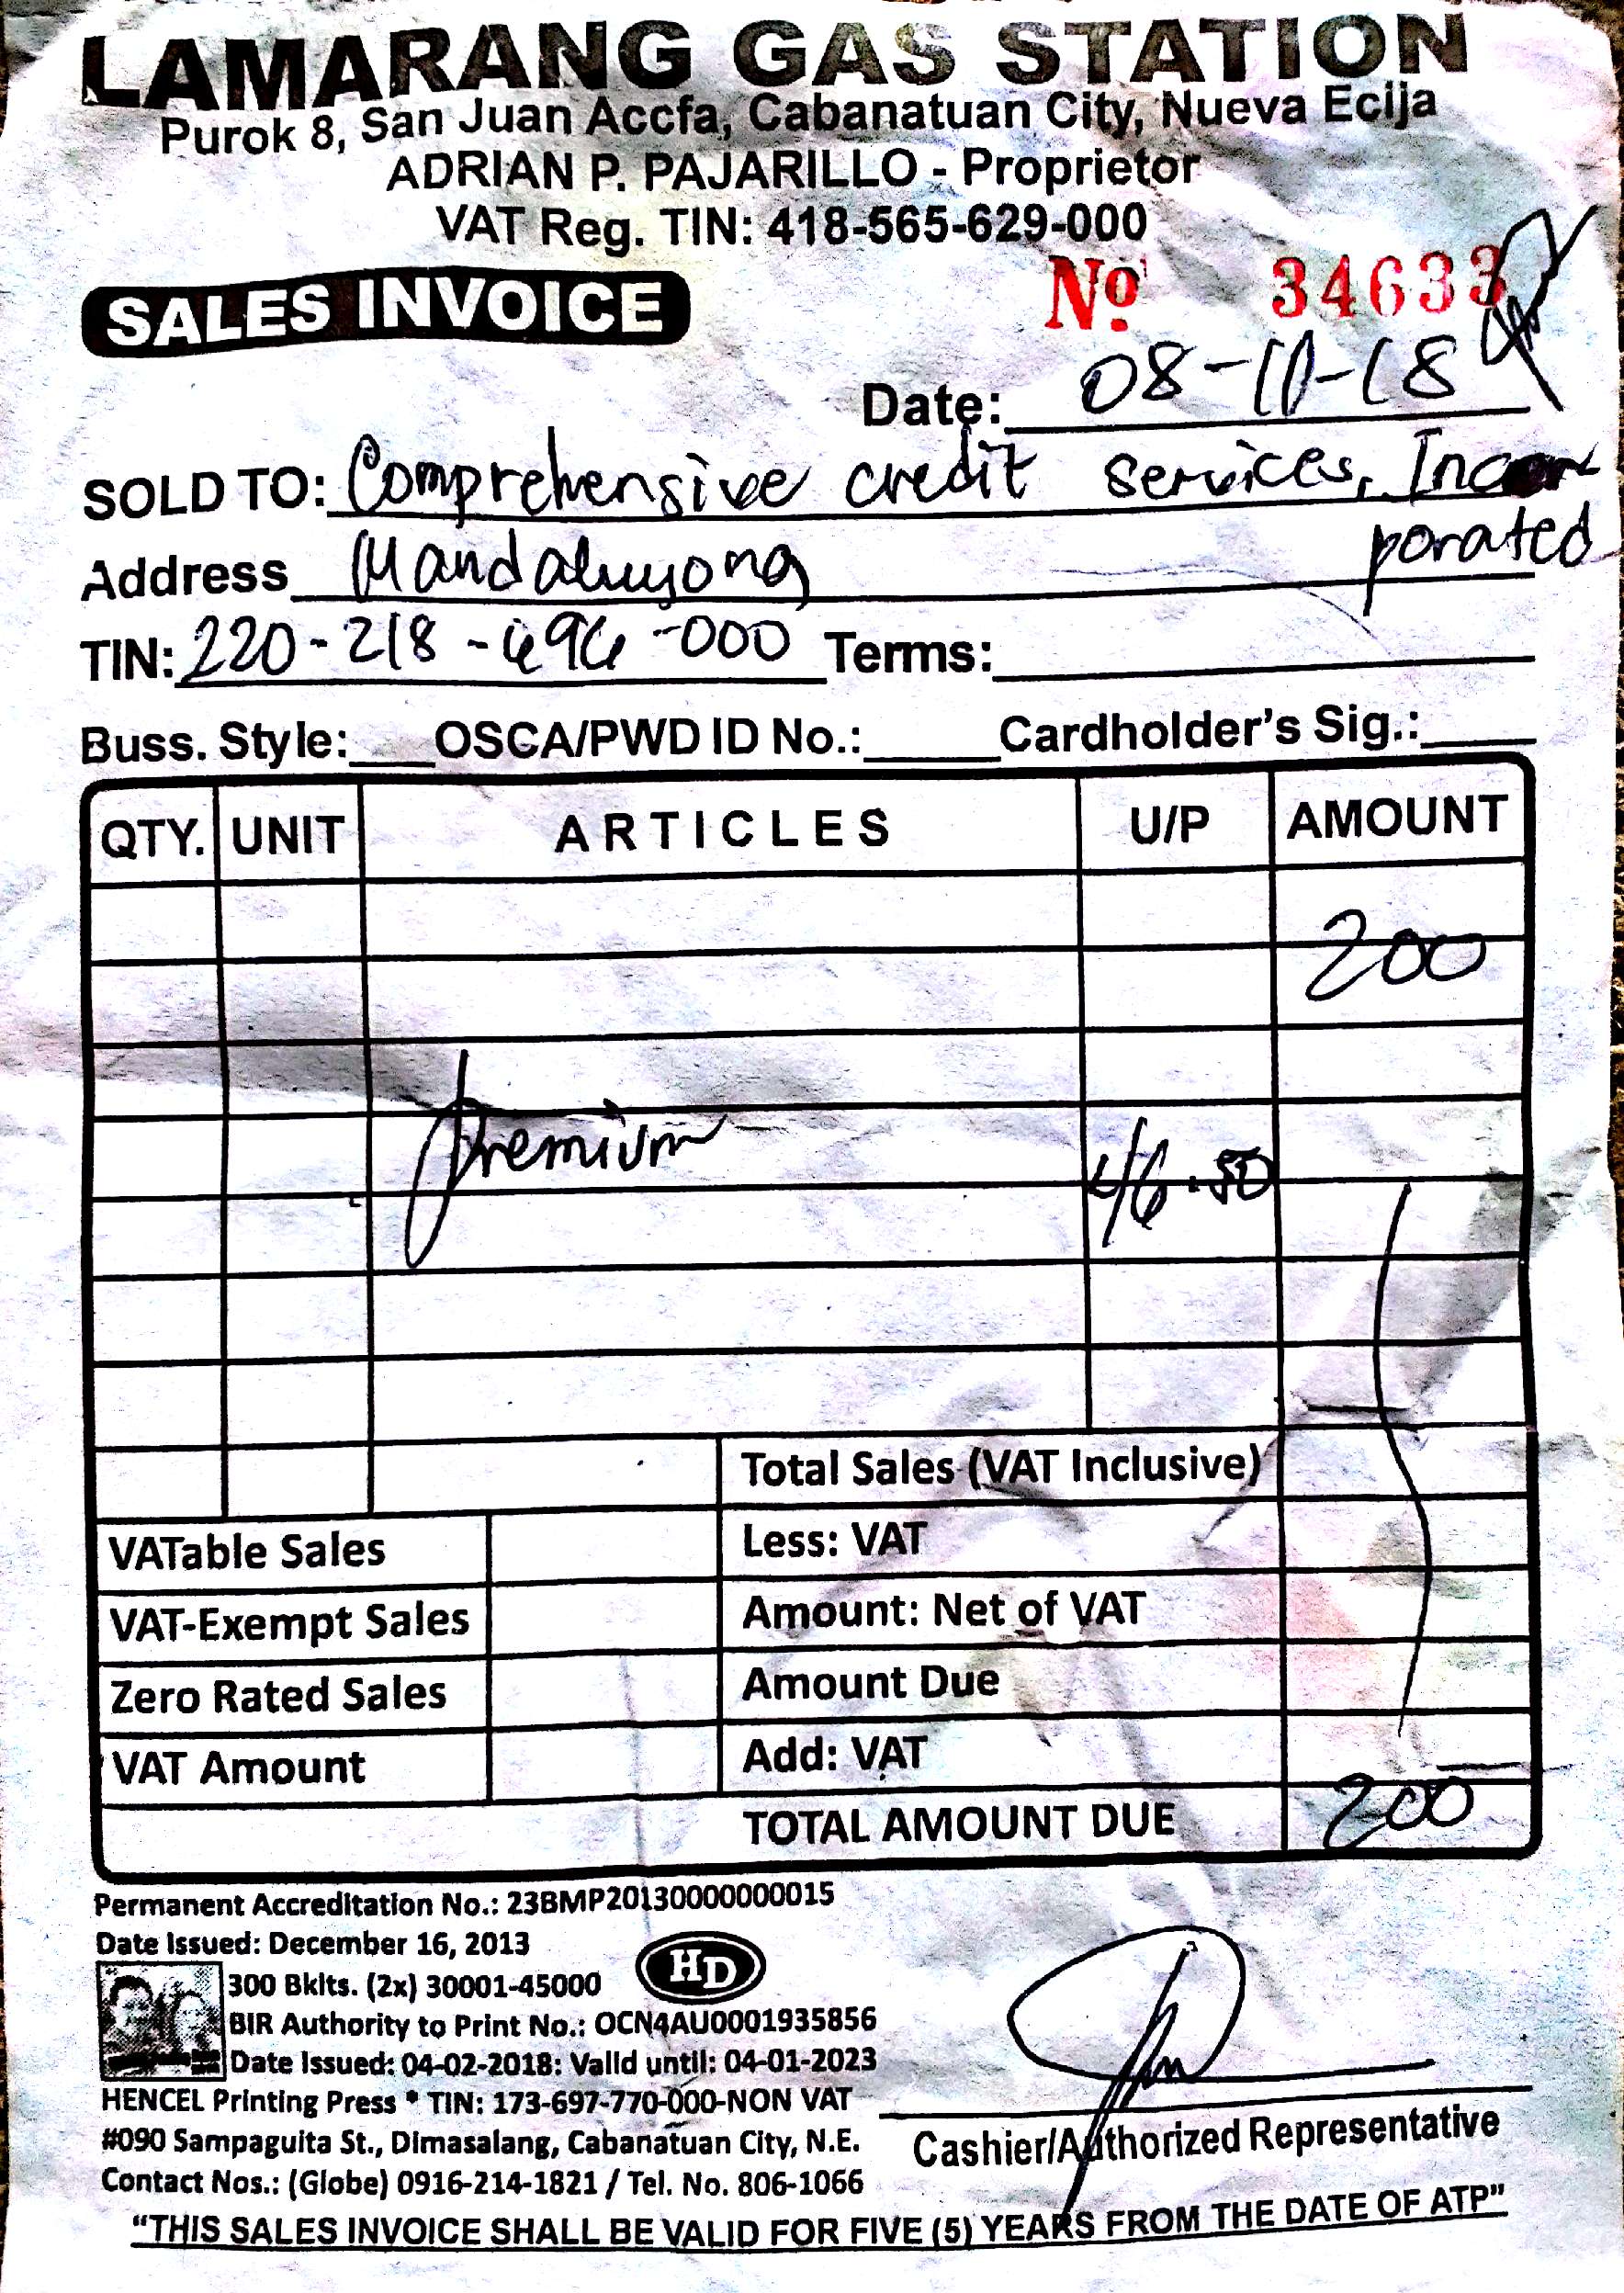 LAMARANG GAS STATION
Purok 8, San Juan Accfa, Cabanatuan City, Nueva Ecija
ADRIAN P. PAJARILLO - Proprietor
VAT Reg. TIN: 418-565-629-000
SALES INVOICE
Nº 34633
Date: 08-11-18
SOLD TO: Comprehensive credit services, Incor
porated
Address Mandaluyong
TIN: 220-218-696-000 Terms:
Buss. Style: OSCA/PWD ID No.: Cardholder's Sig.:
QTY. UNIT ARTICLES U/P AMOUNT
200
premium 46.50
Total Sales (VAT Inclusive)
VATable Sales Less: VAT
VAT-Exempt Sales Amount: Net of VAT
Zero Rated Sales Amount Due
VAT Amount Add: VAT
TOTAL AMOUNT DUE 200
Permanent Accreditation No.: 23BMP20130000000015
Date Issued: December 16, 2013
HD
300 Bklts. (2x) 30001-45000
BIR Authority to Print No.: OCN4AU0001935856
Date Issued: 04-02-2018: Valid until: 04-01-2023
HENCEL Printing Press * TIN: 173-697-770-000-NON VAT
#090 Sampaguita St., Dimasalang, Cabanatuan City, N.E.
Contact Nos.: (Globe) 0916-214-1821 / Tel. No. 806-1066
Cashier/Authorized Representative
"THIS SALES INVOICE SHALL BE VALID FOR FIVE (5) YEARS FROM THE DATE OF ATP"